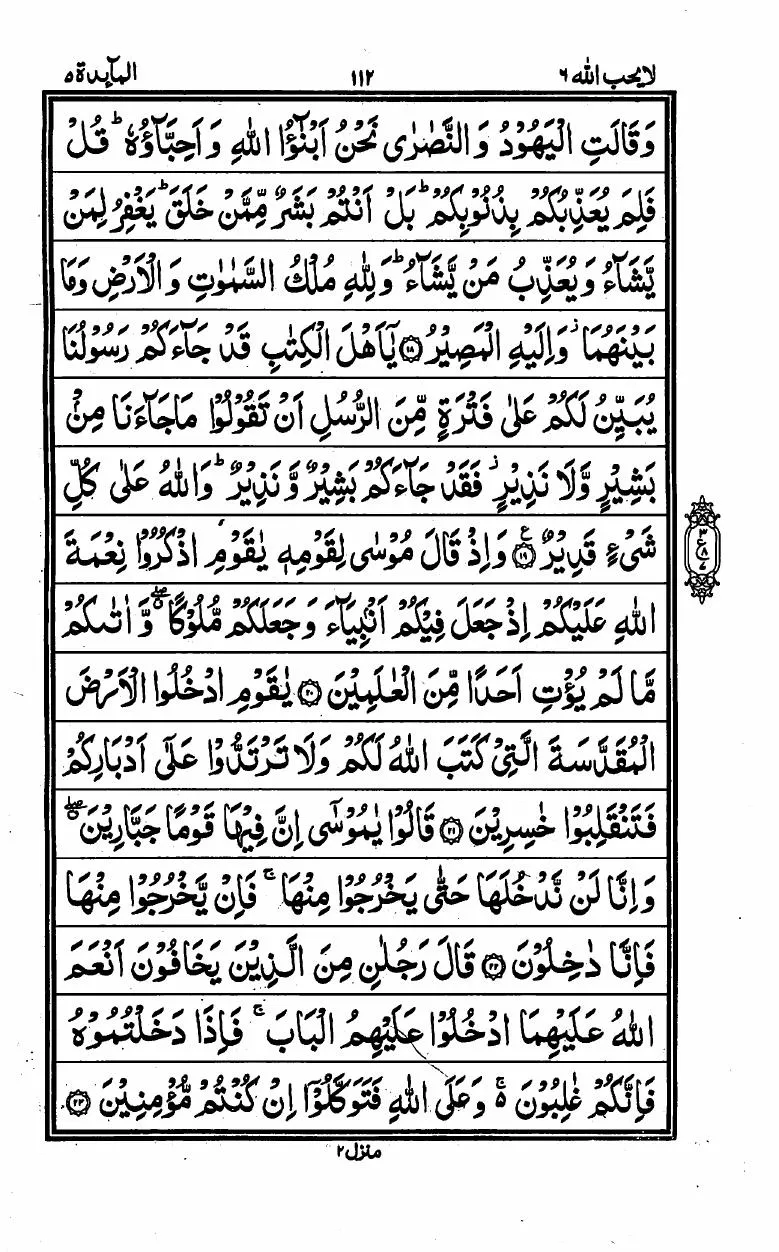 لایحب الله ۶ ۱۱۲ المآىِٕدة ۵
وَقَالَتِ الْیَهُوْدُ وَ النَّصٰرٰی نَحْنُ اَبْنٰٓؤُا اللّٰهِ وَ اَحِبَّآؤُهٗ ؕ قُلْ
فَلِمَ یُعَذِّبُكُمْ بِذُنُوْبِكُمْ ؕ بَلْ اَنْتُمْ بَشَرٌ مِّمَّنْ خَلَقَ ؕ یَغْفِرُ لِمَنْ
یَّشَآءُ وَ یُعَذِّبُ مَنْ یَّشَآءُ ؕ وَ لِلّٰهِ مُلْكُ السَّمٰوٰتِ وَ الْاَرْضِ وَمَا
بَیْنَهُمَا ؗ وَاِلَیْهِ الْمَصِیْرُ ۝۱۸ یٰۤاَهْلَ الْكِتٰبِ قَدْ جَآءَكُمْ رَسُوْلُنَا
یُبَیِّنُ لَكُمْ عَلٰی فَتْرَةٍ مِّنَ الرُّسُلِ اَنْ تَقُوْلُوْا مَاجَآءَنَا مِنْۢ
بَشِیْرٍ وَّلَا نَذِیْرٍ ؗ فَقَدْ جَآءَكُمْ بَشِیْرٌ وَّ نَذِیْرٌ ؕ وَاللّٰهُ عَلٰی كُلِّ
شَیْءٍ قَدِیْرٌ ۝۱۹ ع وَ اِذْ قَالَ مُوْسٰی لِقَوْمِهٖ یٰقَوْمِ اذْكُرُوْا نِعْمَةَ
۳ ع ۸ ۷
اللّٰهِ عَلَیْكُمْ اِذْ جَعَلَ فِیْكُمْ اَنْۢبِیَآءَ وَ جَعَلَكُمْ مُّلُوْكًا ۖۗ وَّ اٰتٰىكُمْ
مَّا لَمْ یُؤْتِ اَحَدًا مِّنَ الْعٰلَمِیْنَ ۝۲۰ یٰقَوْمِ ادْخُلُوا الْاَرْضَ
الْمُقَدَّسَةَ الَّتِیْ كَتَبَ اللّٰهُ لَكُمْ وَلَا تَرْتَدُّوْا عَلٰۤی اَدْبَارِكُمْ
فَتَنْقَلِبُوْا خٰسِرِیْنَ ۝۲۱ قَالُوْا یٰمُوْسٰۤی اِنَّ فِیْهَا قَوْمًا جَبَّارِیْنَ ۖۗ
وَ اِنَّا لَنْ نَّدْخُلَهَا حَتّٰی یَخْرُجُوْا مِنْهَا ۚ فَاِنْ یَّخْرُجُوْا مِنْهَا
فَاِنَّا دٰخِلُوْنَ ۝۲۲ قَالَ رَجُلٰنِ مِنَ الَّذِیْنَ یَخَافُوْنَ اَنْعَمَ
اللّٰهُ عَلَیْهِمَا ادْخُلُوْا عَلَیْهِمُ الْبَابَ ۚ فَاِذَا دَخَلْتُمُوْهُ
فَاِنَّكُمْ غٰلِبُوْنَ ۚ۬ وَ عَلَی اللّٰهِ فَتَوَكَّلُوْۤا اِنْ كُنْتُمْ مُّؤْمِنِیْنَ ۝۲۳
منزل ۲